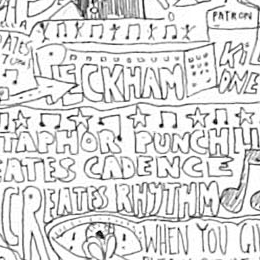 PATRON
PECKHAM
TAPHOR PUNCHLI
EATES CADENCE
CREATES RHYTHM
WHEN YOU GI